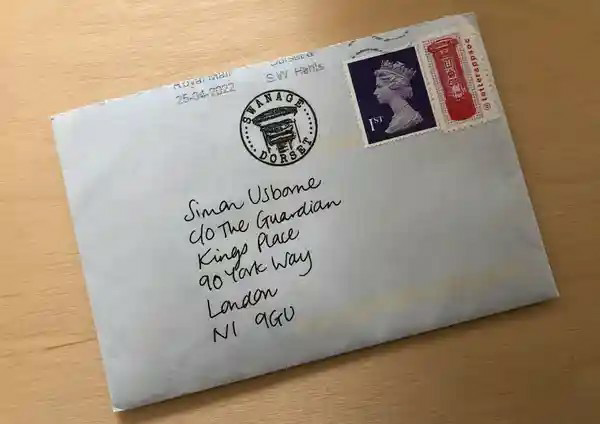 Royal Mail
25-04-2022
Dorset &
S.W Hants
SWANAGE
DORSET
1ST
@lettersppace
Simon Usborne
C/O The Guardian
Kings Place
90 York Way
London
N1 9GU